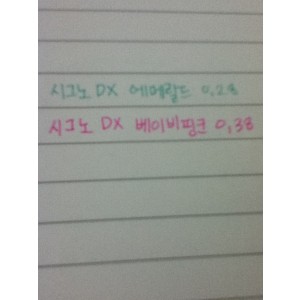 시그노 DX 에메랄드 0,28
시그노 DX 베이비핑크 0,38